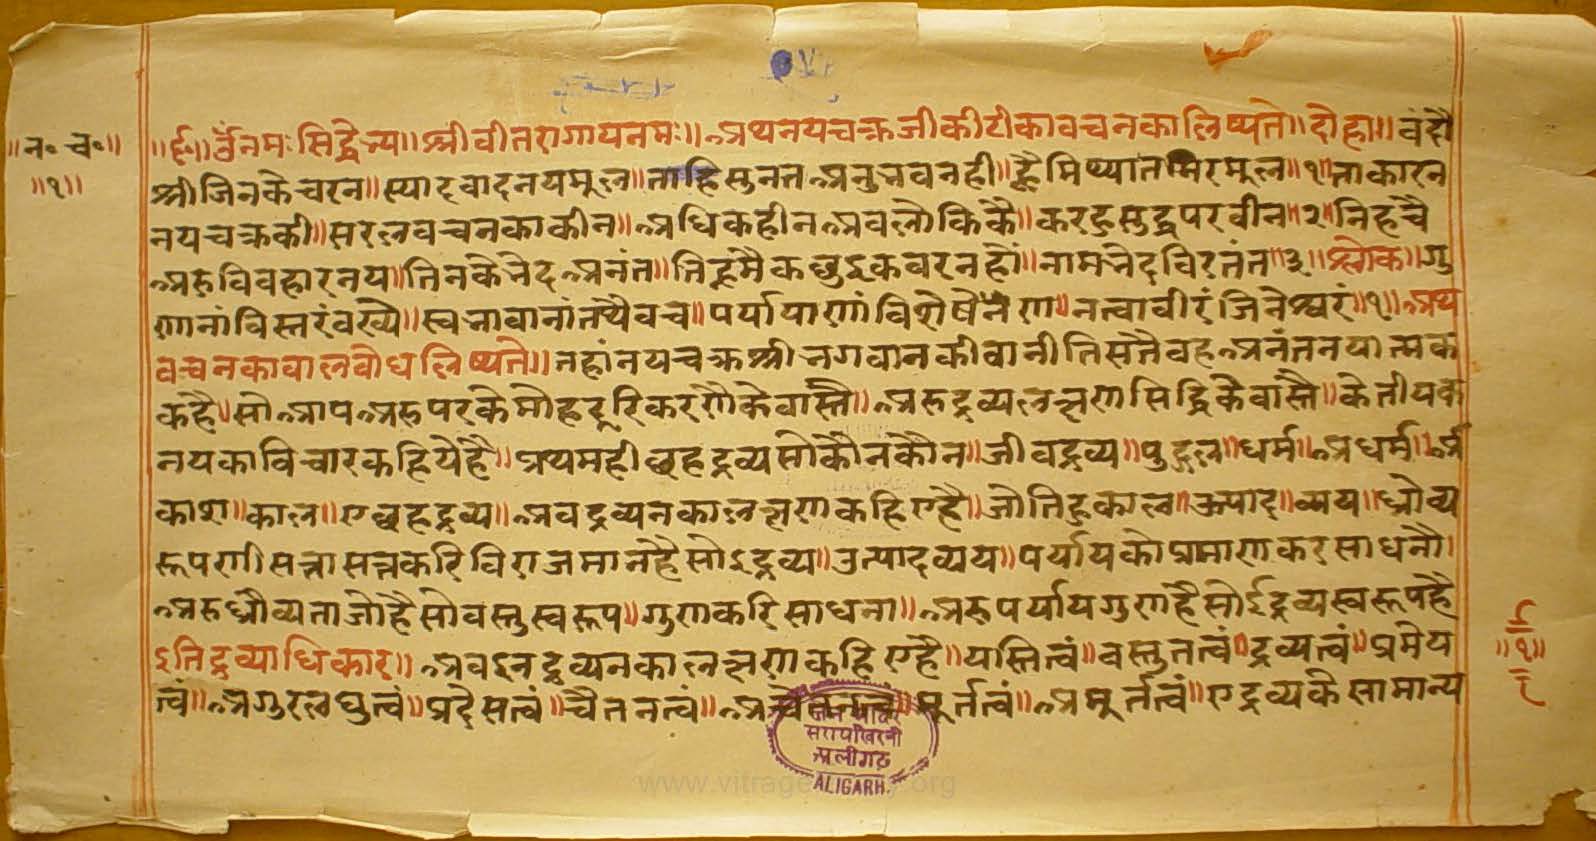 ॥न॰च॰॥
॥१॥
॥ॐनमःसिद्धेभ्य॥श्रीवीतरागायनमः॥अथनयचक्रजीकीटीकावचनकालिष्यते॥दोहा॥वंदौ
श्रीजिनकेचरन॥स्यादवादनयमूल॥ताहिसुनतअनुभवनही॥ह्वैमिथ्यातनिरमूल॥१॥ताकारन
नयचक्रकी॥सरलवचनकाकीन॥अधिकहीनअवलोकिकै॥करहुसुद्धपरवीन॥२॥निहचै
अरुविवहारनय॥तिनकेभेदअनंत॥तिहूमैकछुइकवरनहों॥नामभेदविरतंत॥३॥श्लोक॥गु
णानांविस्तरंवक्ष्ये॥स्वभावानांतथैवच॥पर्यायाणांविशेषेनेण॥नत्वावीरंजिनेश्वरं॥१॥अथ
वचनकावालवोधलिष्यते॥तहांनयचक्रश्रीभगवानकीवानीतिसतैवहअनंतनयात्मक
कहै॥सोआपअरुपरकेमोहदूरिकरणौकेवास्तै॥अरुद्रव्यलक्षणसिद्धिकेवास्तै॥केतीयक
नयकाविचारकहियेहै॥प्रथमहीछहद्रव्यसोकौनकौन॥जीवद्रव्य॥पुद्गल॥धर्म॥अधर्म॥आ
काश॥काल॥एछहद्रव्य॥अवद्रव्यनकालक्षणकहिएहै॥जोतिहुकाल॥ऊत्पाद॥व्यय॥ध्रौव्य
रूपणीसत्तासत्तकरिविराजमानहैसोइद्रव्य॥उत्पादव्यय॥पर्यायकोप्रमाणकरसाधनौ।
अरुध्रौव्यताजोहैसोवस्तुस्वरूप॥गुणकरिसाधना॥अरुपर्यायगुणहैसोईद्रव्यस्वरूपहै
इतिद्रव्याधिकार॥अवइनद्रव्यनकालक्षणकहिएहै॥यस्तित्वं॥वस्तुतत्वं॥द्रव्यत्वं॥प्रमेय
त्वं॥अगुरलघुत्वं॥प्रदेसत्वं॥चैतनत्वं॥अचैतनत्वं॥मूर्तत्वं॥अमूर्तत्वं॥एद्रव्यकेसामान्य
॥१॥
अलीगढ़
ALIGARH.